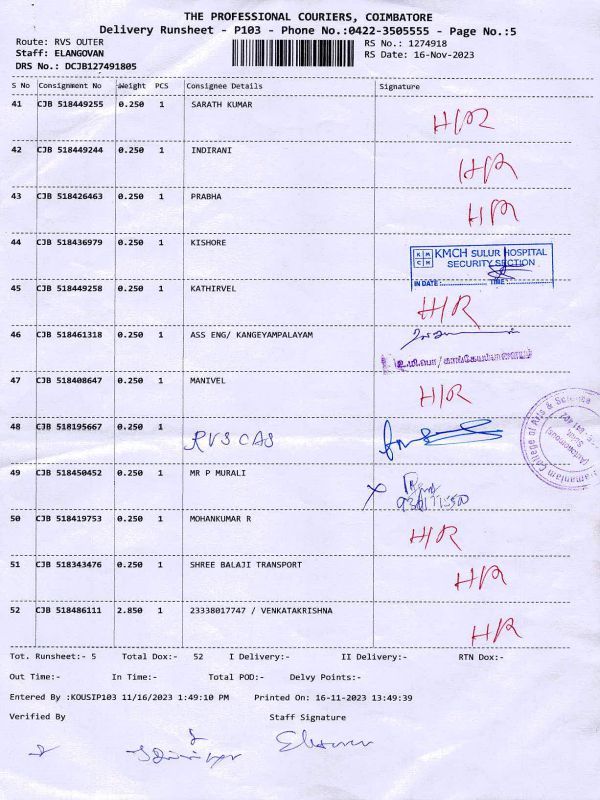 THE PROFESSIONAL COURIERS, COIMBATORE
Delivery Runsheet - P103 - Phone No.:0422-3505555 - Page No.:5
Route: RVS OUTER RS No.: 1274918
Staff: ELANGOVAN RS Date: 16-Nov-2023
DRS No.: DCJB127491805
S No Consignment No Weight PCS Consignee Details Signature
41 CJB 518449255 0.250 1 SARATH KUMAR H/R
42 CJB 518449244 0.250 1 INDIRANI H/R
43 CJB 518426463 0.250 1 PRABHA H/R
44 CJB 518436979 0.250 1 KISHORE
KMCH SULUR HOSPITAL
SECURITY SECTION
IN DATE: TIME :
45 CJB 518449258 0.250 1 KATHIRVEL H/R
46 CJB 518461318 0.250 1 ASS ENG/ KANGEYAMPALAYAM
47 CJB 518408647 0.250 1 MANIVEL H/R
48 CJB 518195667 0.250 1 RVS CAS
49 CJB 518450452 0.250 1 MR P MURALI
50 CJB 518419753 0.250 1 MOHANKUMAR R H/R
51 CJB 518343476 0.250 1 SHREE BALAJI TRANSPORT H/R
52 CJB 518486111 2.850 1 23338017747 / VENKATAKRISHNA H/R
Tot. Runsheet:- 5 Total Dox:- 52 I Delivery:- II Delivery:- RTN Dox:-
Out Time:- In Time:- Total POD:- Delvy Points:-
Entered By :KOUSIP103 11/16/2023 1:49:10 PM Printed On: 16-11-2023 13:49:39
Verified By Staff Signature